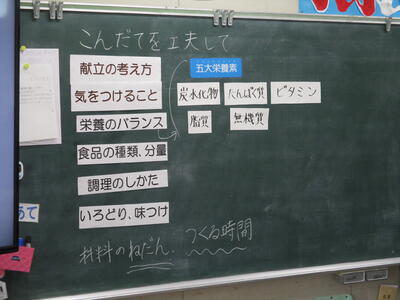 こんだてを工夫して
献立の考え方
気をつけること
栄養のバランス
食品の種類、分量
調理のしかた
いろどり、味つけ
材料のねだん、つくる時間
五大栄養素
炭水化物 たんぱく質 ビタミン
脂質 無機質